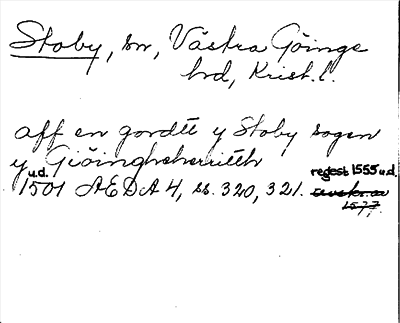 Stoby, sn, Västra Göinge
hd, Krist. l.
aff en gordtt y Stoby sogen
y Giöingheherritth
u.d. regest 1555 u.d.
1501 ÆDA 4, ss. 320, 321.
1577.